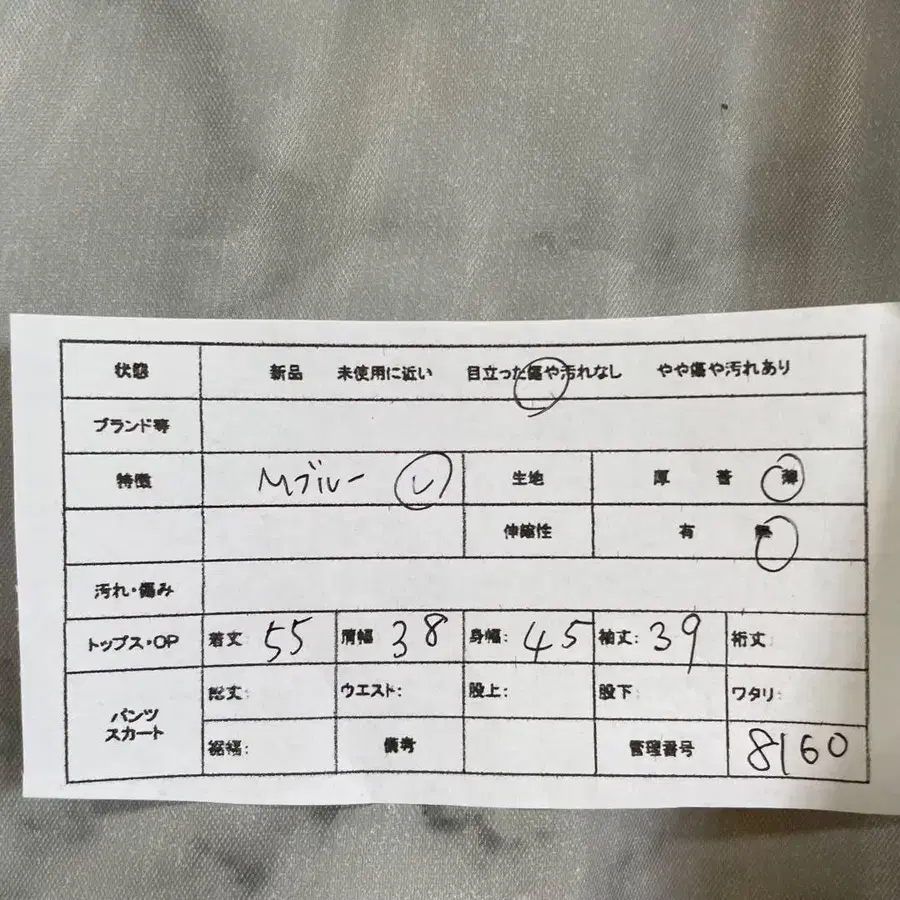 状態 新品 未使用に近い 目立った傷や汚れなし やや傷や汚れあり
ブランド等
特徴 Mブルー レ 生地 厚 普 薄
伸縮性 有 無
汚れ・傷み
トップス・OP 着丈 55 肩幅 38 身幅: 45 袖丈: 39 裄丈
パンツ スカート 総丈 ウエスト: 股上: 股下 ワタリ:
裾幅: 備考 管理番号 8160